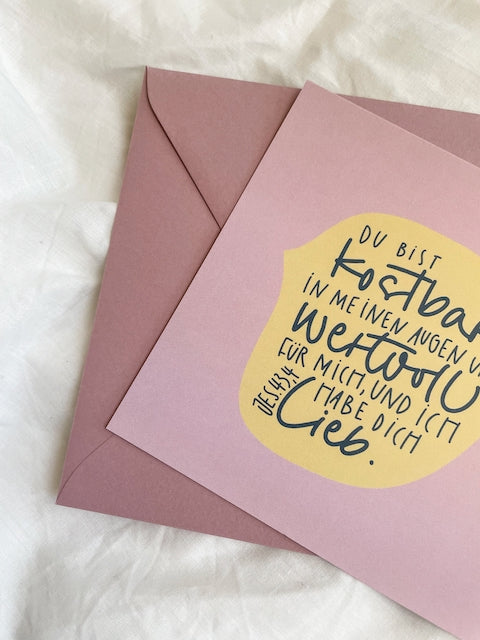 DU BIST
kostbar
IN MEINEN AUGEN U
wertvoll
FÜR MICH, UND ICH
HABE DICH
Lieb.
JES.43,4